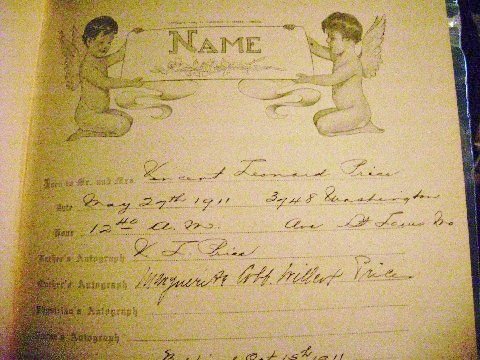 NAME
Born to Mr. and Mrs. Vincent Leonard Price
Date May 27th 1911 3748 Washington
Hour 12 40 A.M. Ave St Louis Mo
Father's Autograph V. L. Price
Mother's Autograph Marguerite Cobb Willcox Price
Physician's Autograph
Nurse's Autograph
Oct 15th 1911